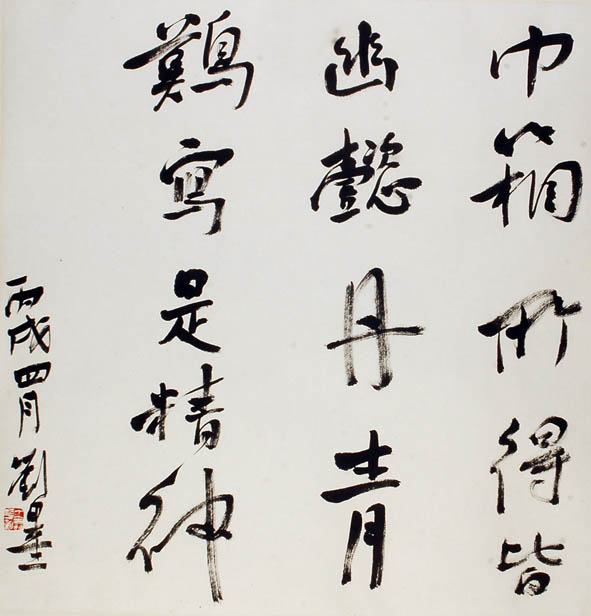 巾箱所得皆
幽懿丹青
難寫是精神
丙戌四月劉墨